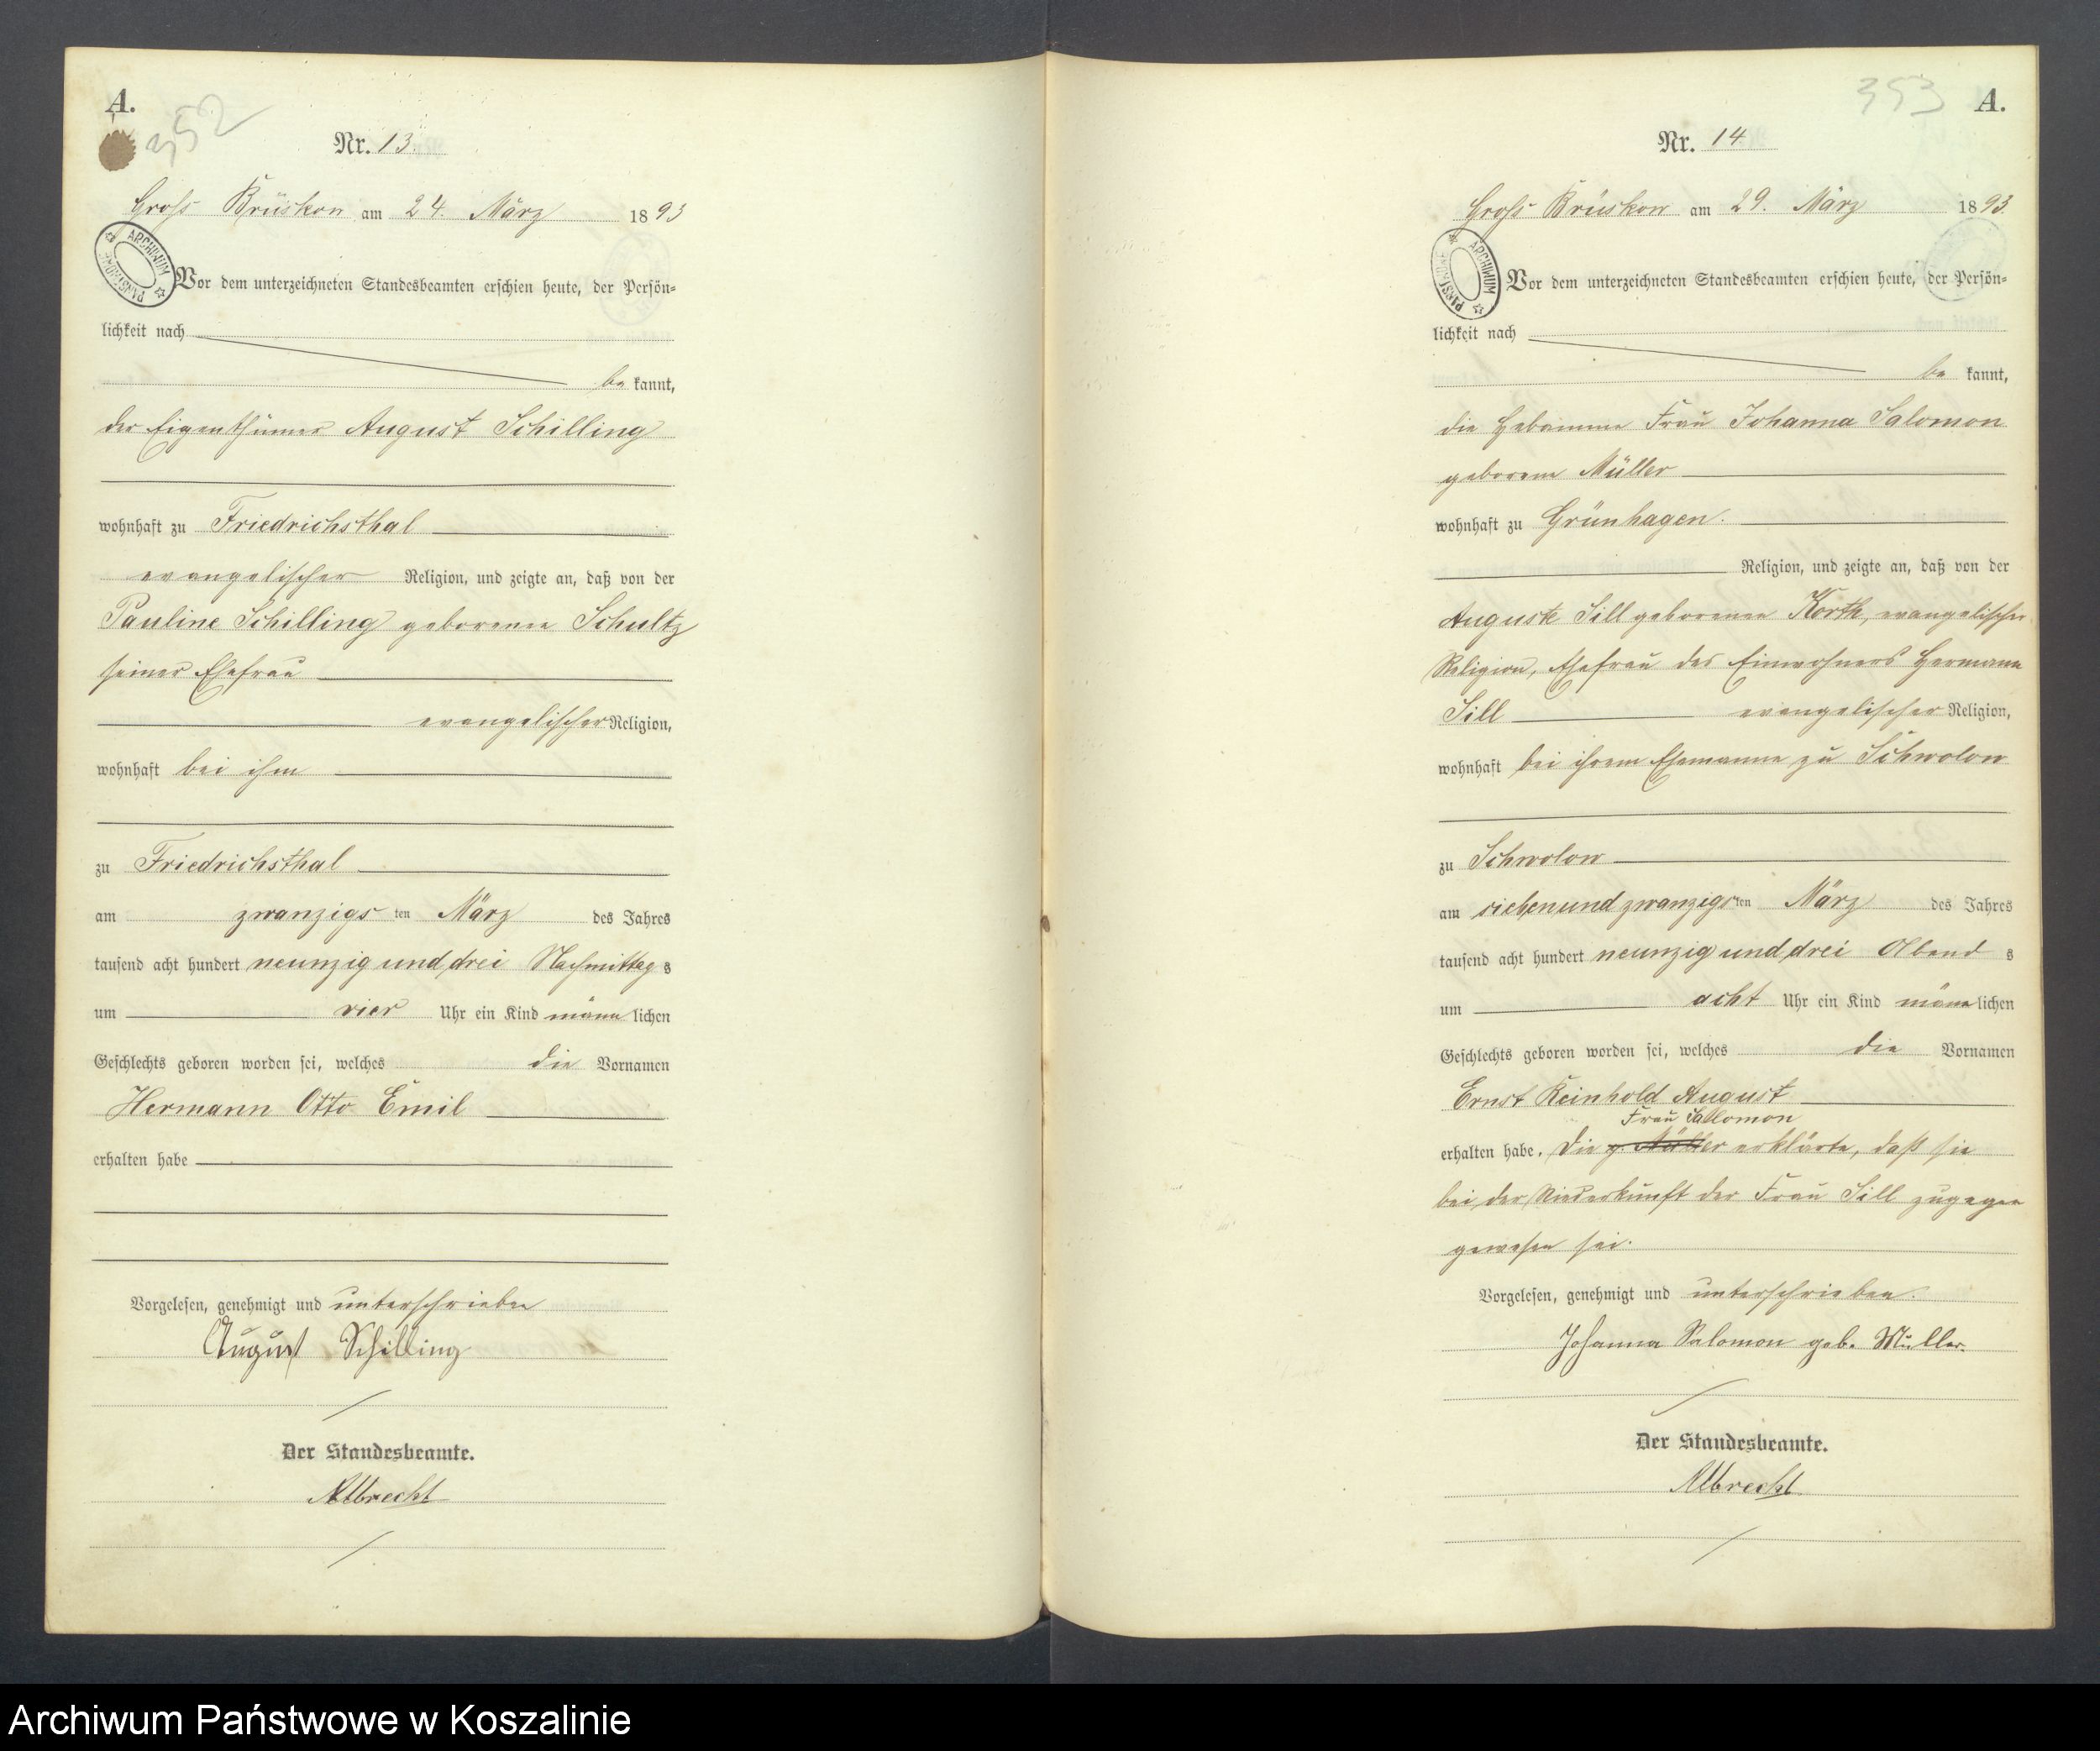 A.
352
Nr. 13.
Gross Brüskow am 24. März 1893
ARCHIWUM PAŃSTWOWE
Vor dem unterzeichneten Standesbeamten erschien heute, der Persön-
lichkeit nach
be kannt,
der Eigenthümer August Schilling
wohnhaft zu Friedrichsthal
evangelischer Religion, und zeigte an, daß von der
Pauline Schilling geborenen Schultz
seiner Ehefrau
evangelischer Religion,
wohnhaft bei ihm
zu Friedrichsthal
am zwanzigs ten März des Jahres
tausend acht hundert neunzig und drei Nachmittag s
um vier Uhr ein Kind männ lichen
Geschlechts geboren worden sei, welches die Vornamen
Hermann Otto Emil
erhalten habe
Vorgelesen, genehmigt und unterschrieben
August Schilling
Der Standesbeamte.
Albrecht
353
A.
Nr. 14
Gross Brüskow am 29. März 1893.
ARCHIWUM PAŃSTWOWE
Vor dem unterzeichneten Standesbeamten erschien heute, der Persön-
lichkeit nach
be kannt,
die Hebamme Frau Johanna Salomon
geborene Müller
wohnhaft zu Grünhagen.
Religion, und zeigte an, daß von der
Auguste Sill geborenen Korth, evangelischer
Religion, Ehefrau des Einwohners Hermann
Sill evangelischer Religion,
wohnhaft bei ihrem Ehemanne zu Schwolow
zu Schwolow
am siebenundzwanzigs ten März des Jahres
tausend acht hundert neunzig und drei Abend s
um acht Uhr ein Kind männ lichen
Geschlechts geboren worden sei, welches die Vornamen
Ernst Reinhold August
Frau Salomon
erhalten habe. Die g. Müller erklärte, daß sie
bei der Niederkunft der Frau Sill zugegen
gewesen sei.
Vorgelesen, genehmigt und unterschrieben.
Johanna Salomon geb. Müller.
Der Standesbeamte.
Albrecht
Archiwum Państwowe w Koszalinie